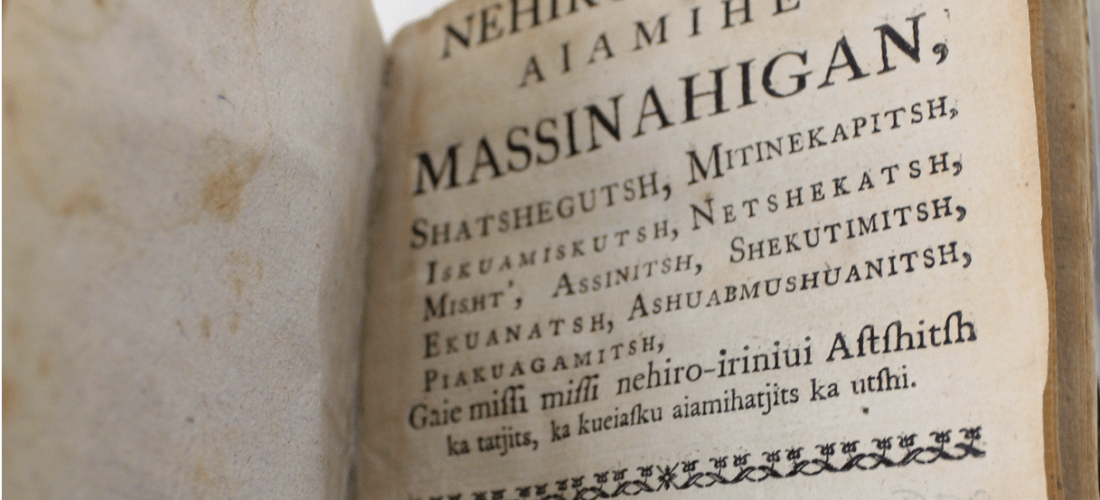 NEHIRO
AIAMIHE
MASSINAHIGAN,
SHATSHEGUTSH, MITINEKAPITSH,
ISKUAMISKUTSH, NETSHEKATSH,
MISHT', ASSINITSH, SHEKUTIMITSH,
EKUANATSH, ASHUABMUSHUANITSH,
PIAKUAGAMITSH,
Gaie miſſi miſſi nehiro-iriniui Aſtſhitſh
ka tatjits, ka kueiaſku aiamihatjits ka utſhi.